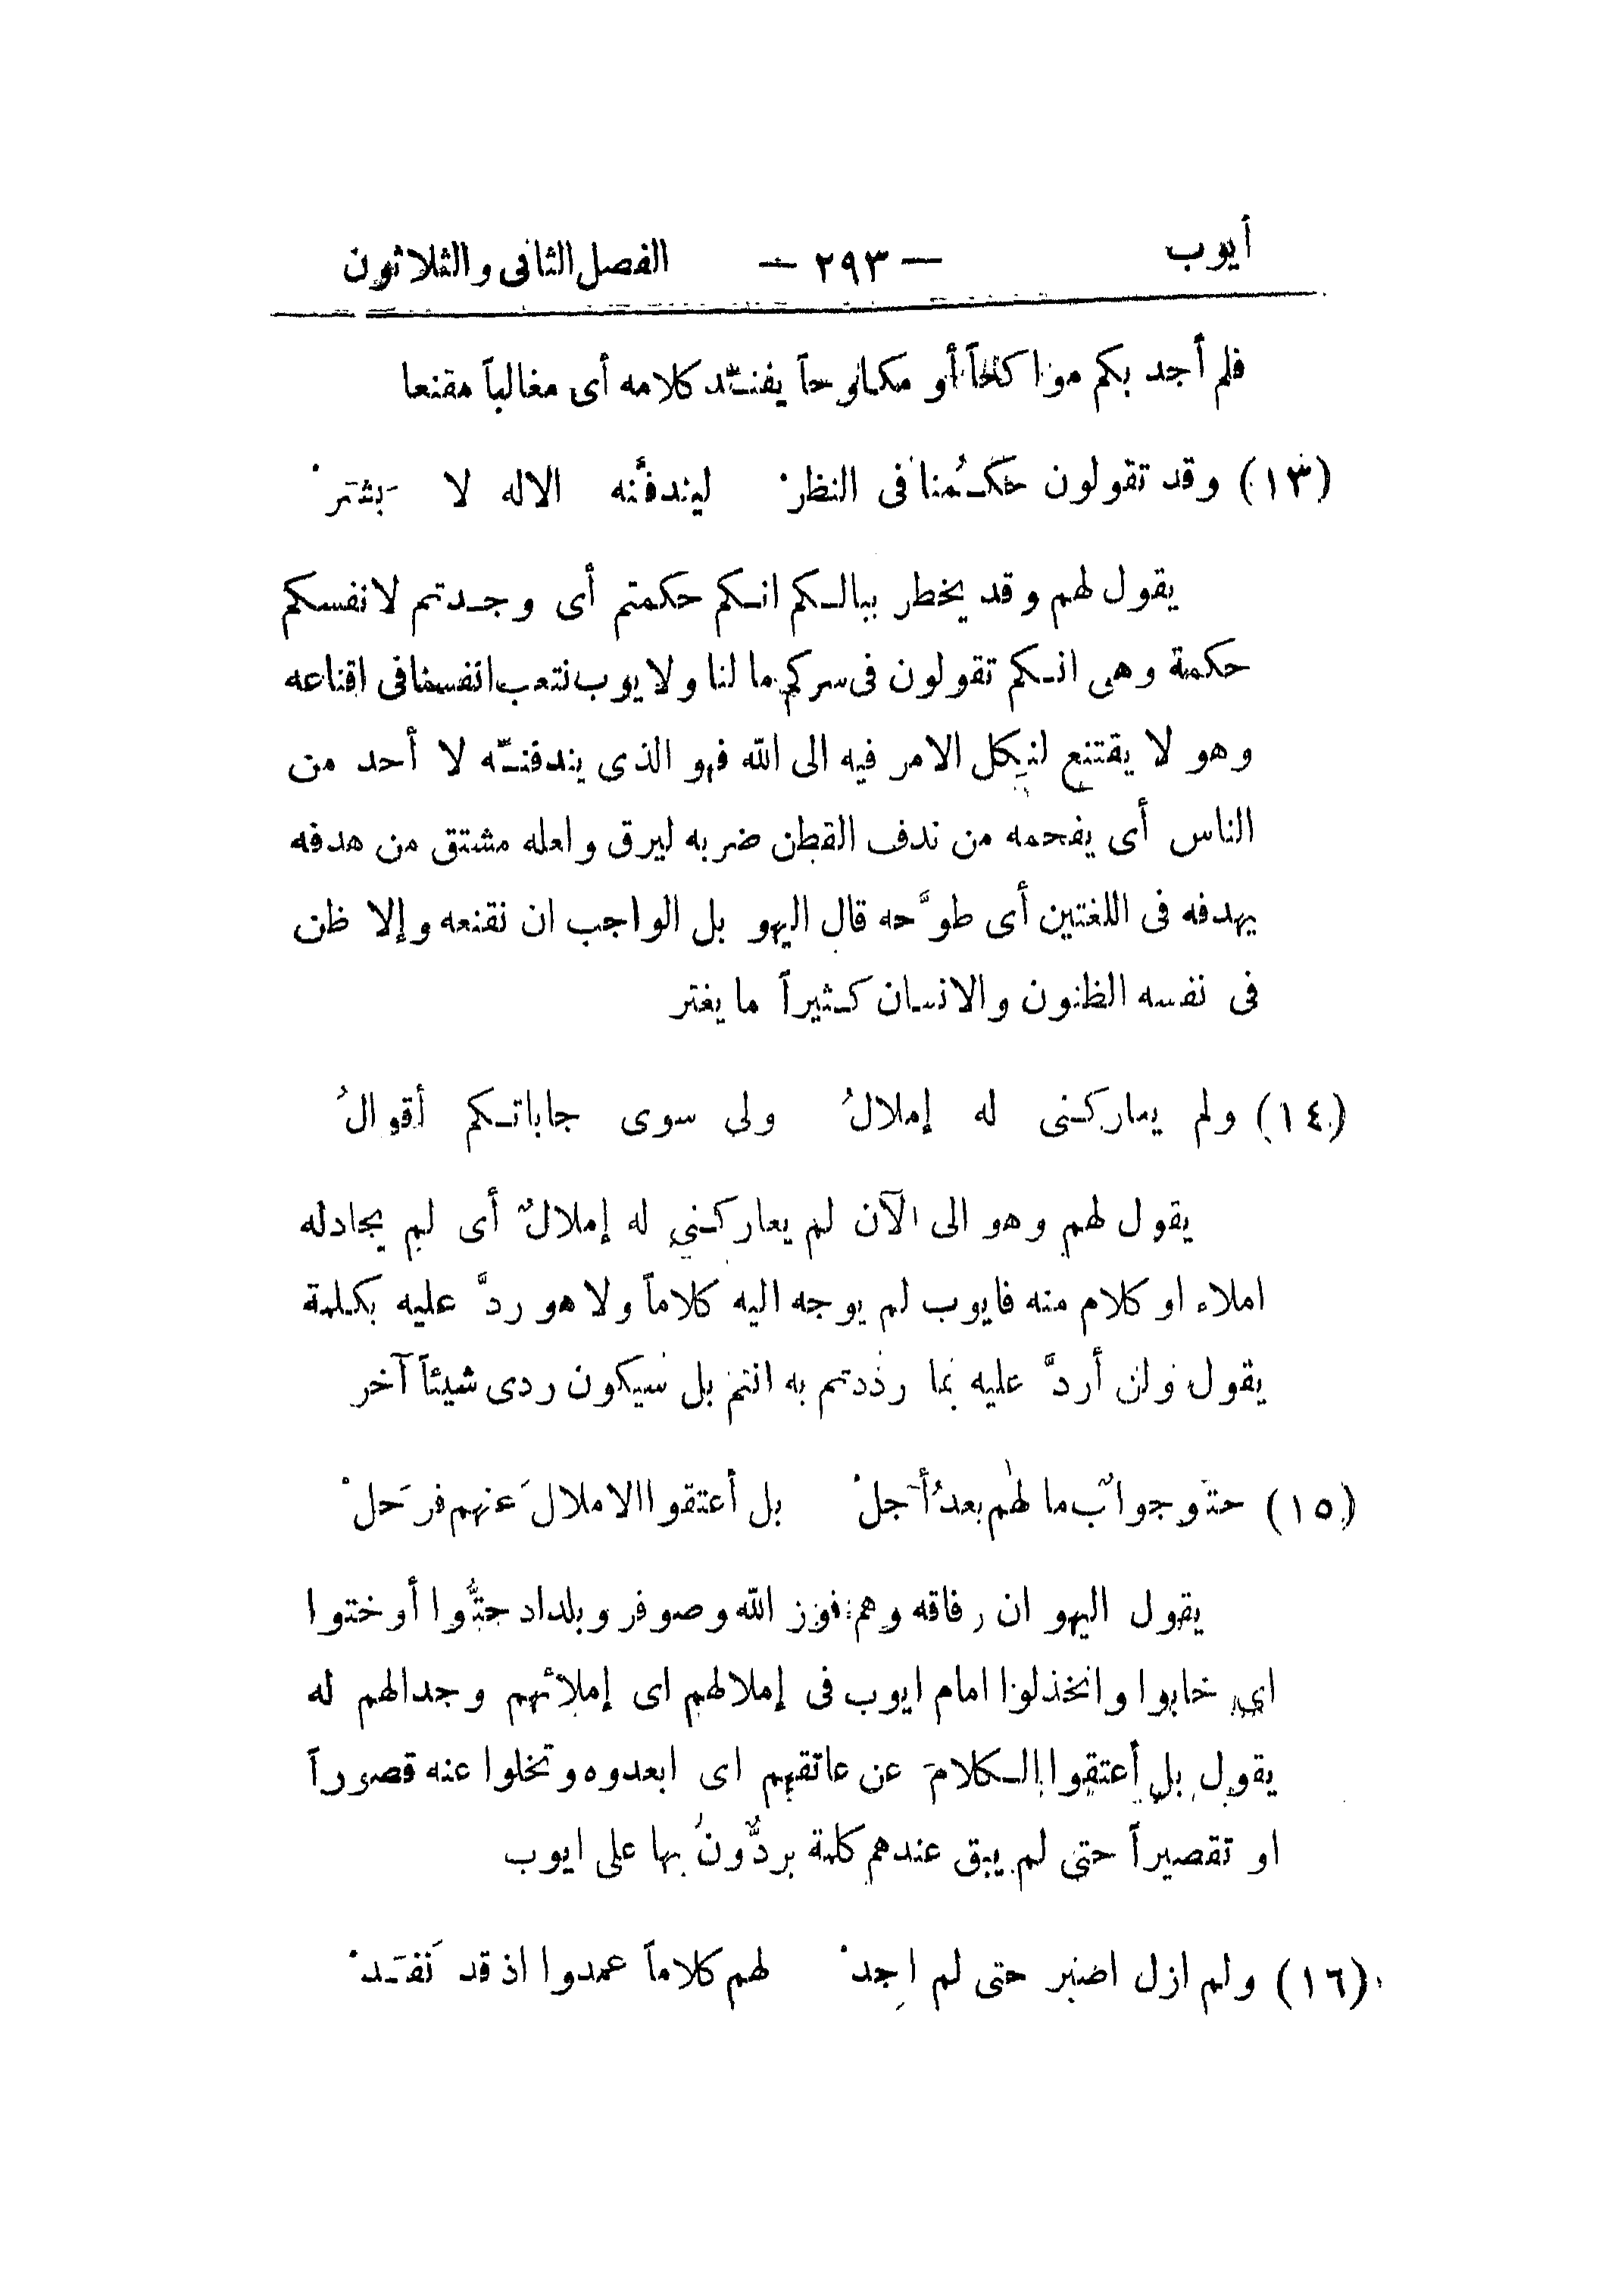 أيوب — ٢٩٣ — الفصل الثانى والثلاثون
فلم أجد بكم مواكحاً أو مكاوحاً يفنّد كلامه أى مغالباً مقنعا
(١٣) وقد تقولون حَكُمنا فى النظرْ ليندفنّه الاله لا بَشَرْ
يقول لهم وقد يخطر ببالكم انكم حكمتم أى وجدتم لانفسكم
حكمة وهى انكم تقولون فى سركم ما لنا ولايوب نتعب انفسنا فى اقناعه
وهو لا يقتنع لنكل الامر فيه الى الله فهو الذى يندفنّه لا أحد من
الناس أى يفحمه من ندف القطن ضربه ليرق ولعله مشتق من هدفه
يهدفه فى اللغتين أى طوَّحه قال اليهو بل الواجب ان نقنعه وإلا ظن
فى نفسه الظنون والانسان كثيراً ما يغتر
(١٤) ولم يعاركنى له إملالُ ولى سوى جاباتكم أقوالُ
يقول لهم وهو الى الآن لم يعاركني له إملالٌ أى لم يجادله
املاء او كلام منه فايوب لم يوجه اليه كلاماً ولا هو ردَّ عليه بكلمة
يقول ولن أردَّ عليه بما رددتم به انتم بل سيكون ردى شيئاً آخر
(١٥) حتّو جوابٌ ما لهم بعدُ أجلْ بل أعتقوا الاملالَ عنهم فرَحلْ
يقول اليهو ان رفاقه وهم فوز الله وصوفر وبلداد حتُّوا أو ختوا
اي خابوا وانخذلوا امام ايوب فى إملالهم اى إملائهم وجدالهم له
يقول بل أعتقوا الكلامَ عن عاتقهم اى ابعدوه وتخلوا عنه قصوراً
او تقصيراً حتى لم يبق عندهم كلمة يردُّونَ بها على ايوب
(١٦) ولم ازل اصبر حتى لم اجدْ لهم كلاماً عمدوا اذ قد نَفَدْ